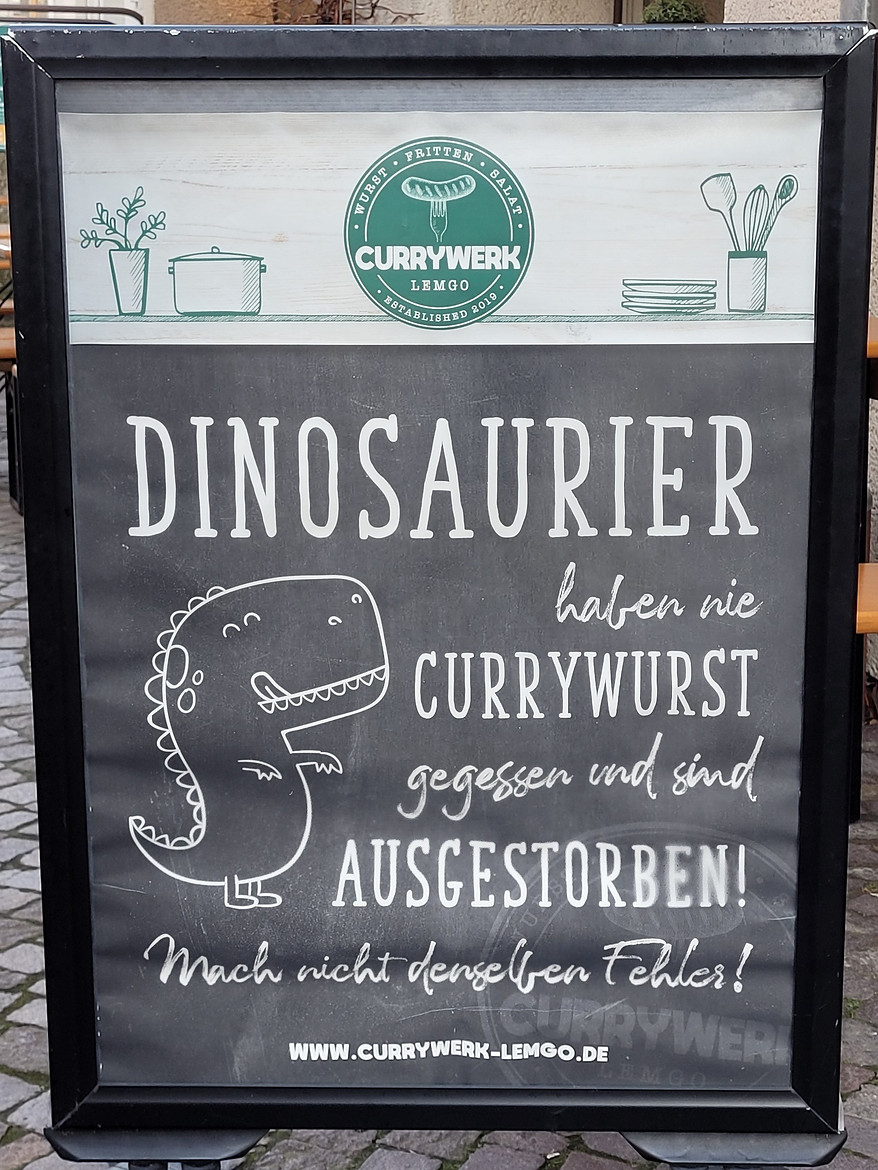 WURST · FRITTEN · SALAT
CURRYWERK
LEMGO
· ESTABLISHED 2019 ·
DINOSAURIER
haben nie
CURRYWURST
gegessen und sind
AUSGESTORBEN!
Mach nicht denselben Fehler!
CURRYWERK
LEMGO
WWW.CURRYWERK-LEMGO.DE